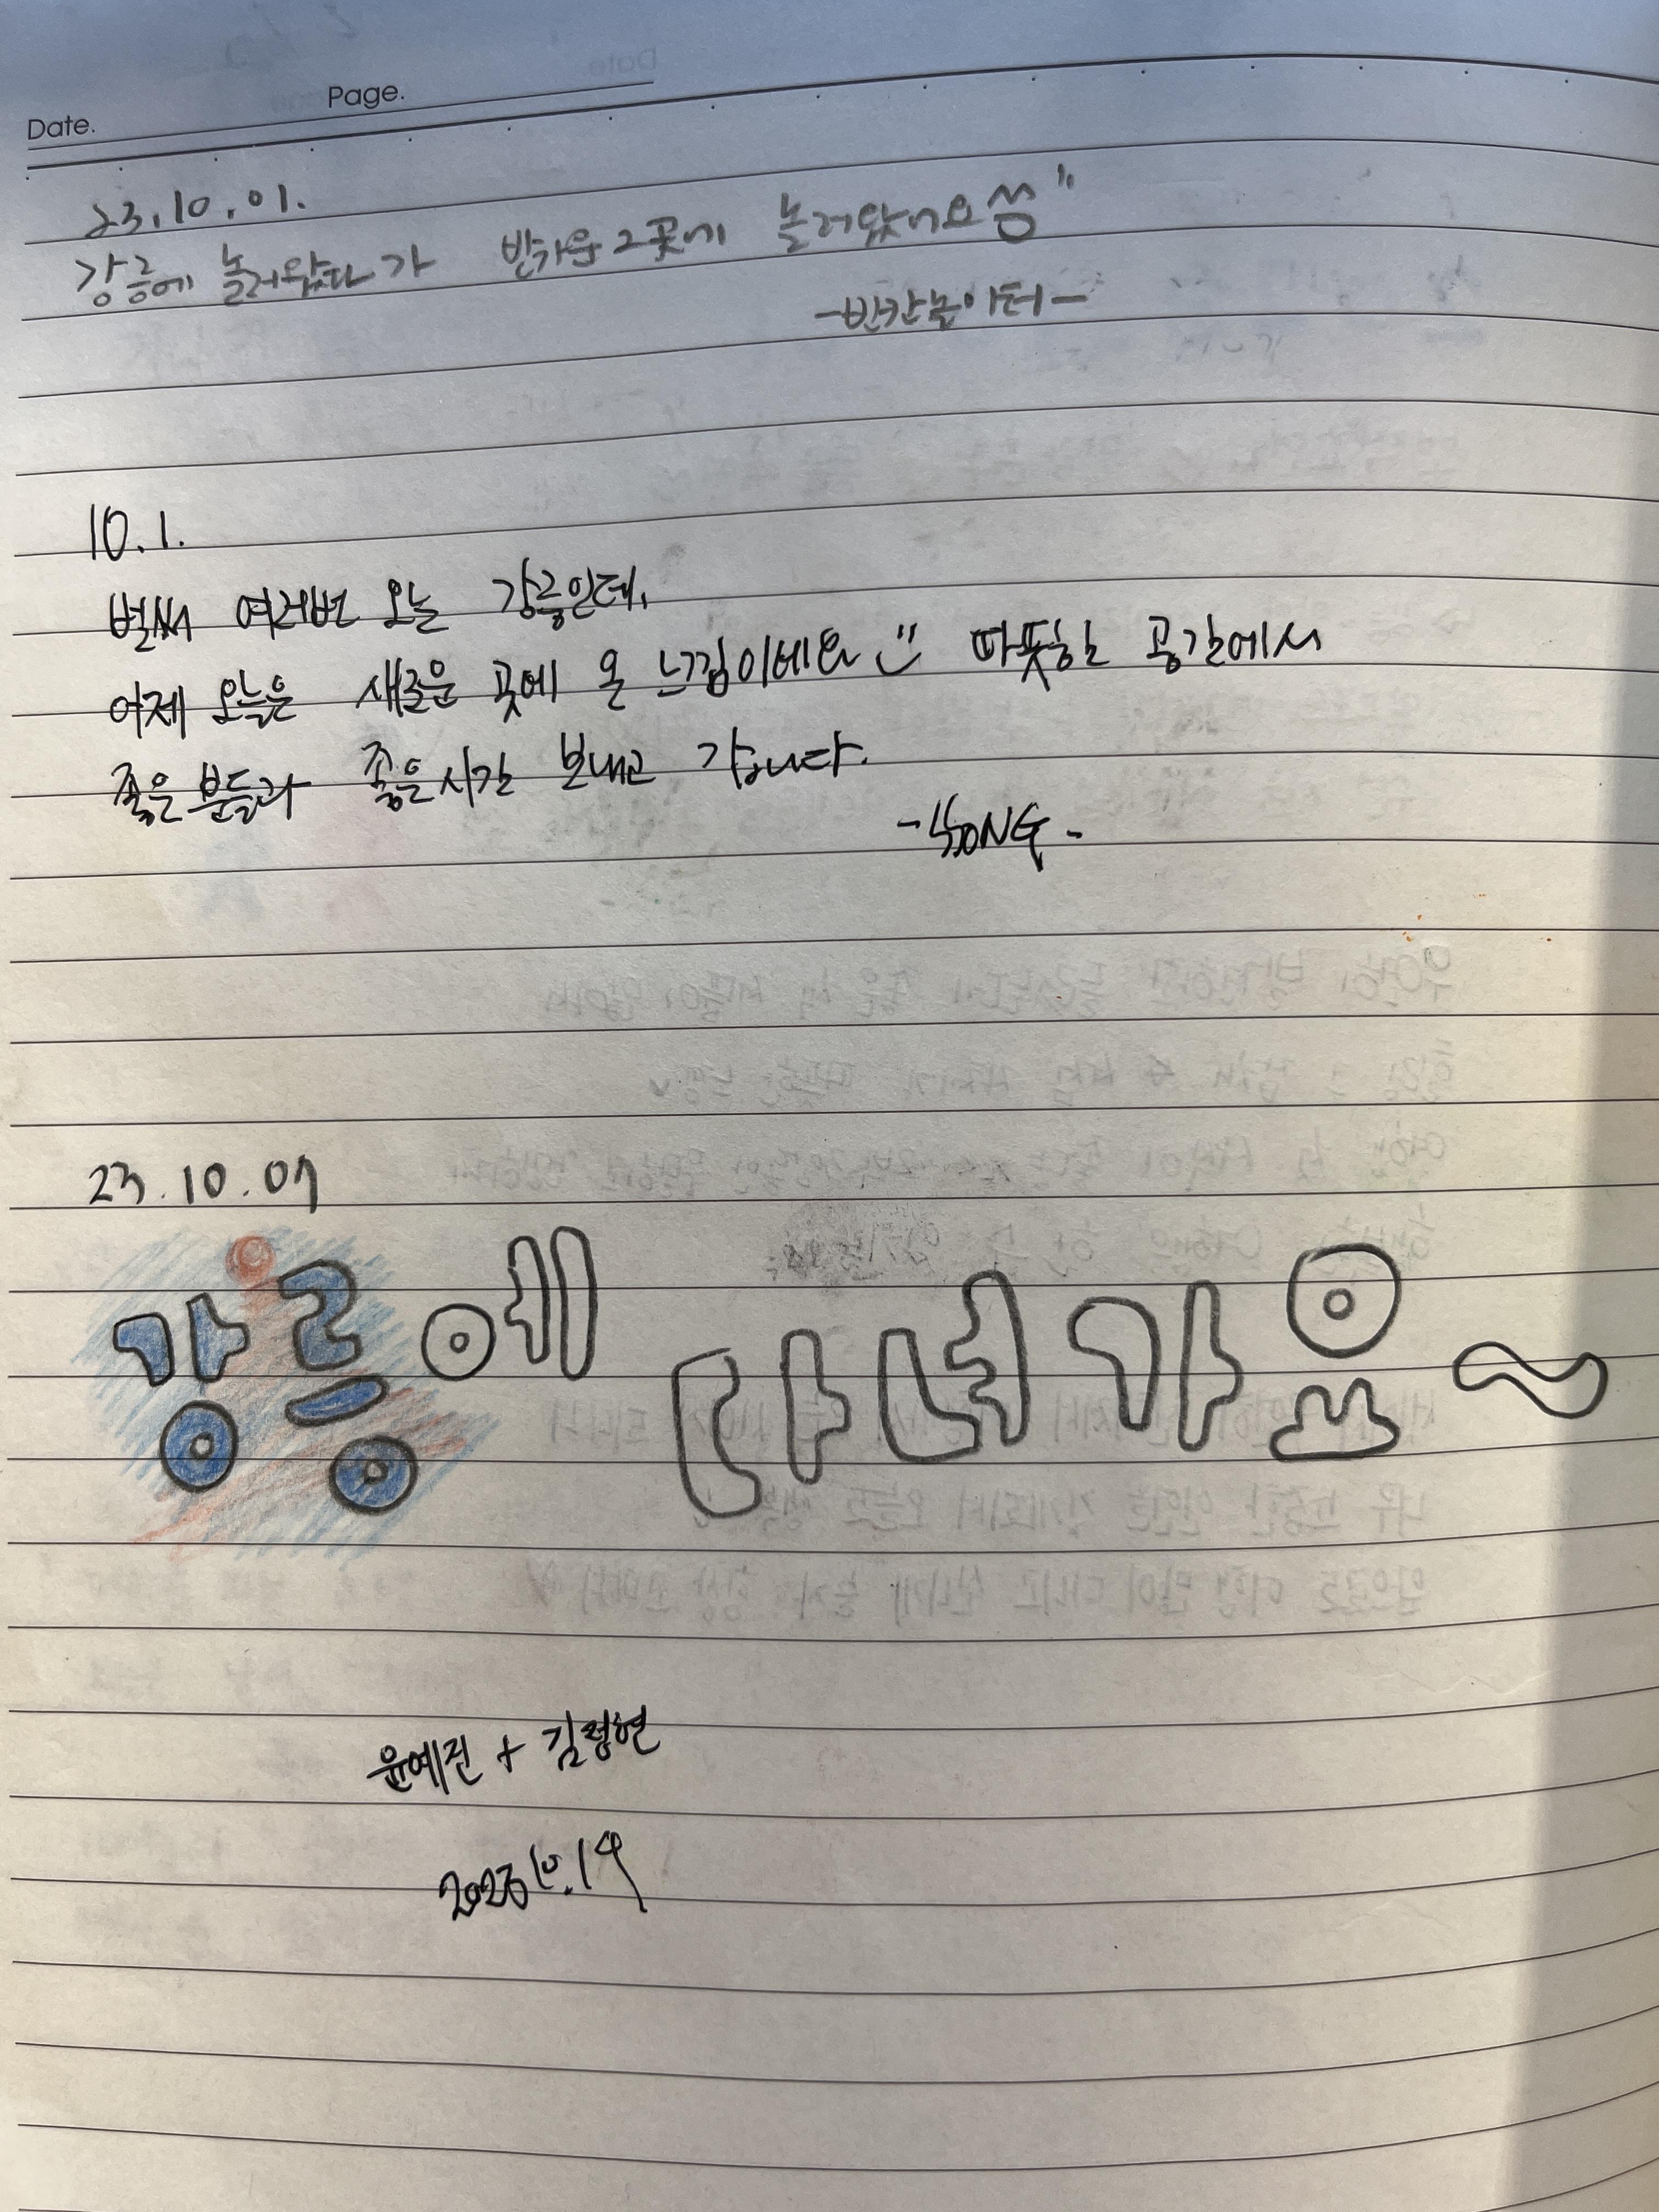 Date.
Page.
23.10.01.
강릉에 놀러왔다가 반가운 그곳에 놀러왔어요
-반칸놀이터-
10.1.
벌써 여러번 오는 강릉인데,
어제 오늘은 새로운 곳에 온 느낌이에요 따뜻한 공간에서
좋은 분들과 좋은시간 보내고 갑니다.
-SONG-
23.10.07
강릉에 다녀가요~
윤예진 + 김정현
2023.10.19